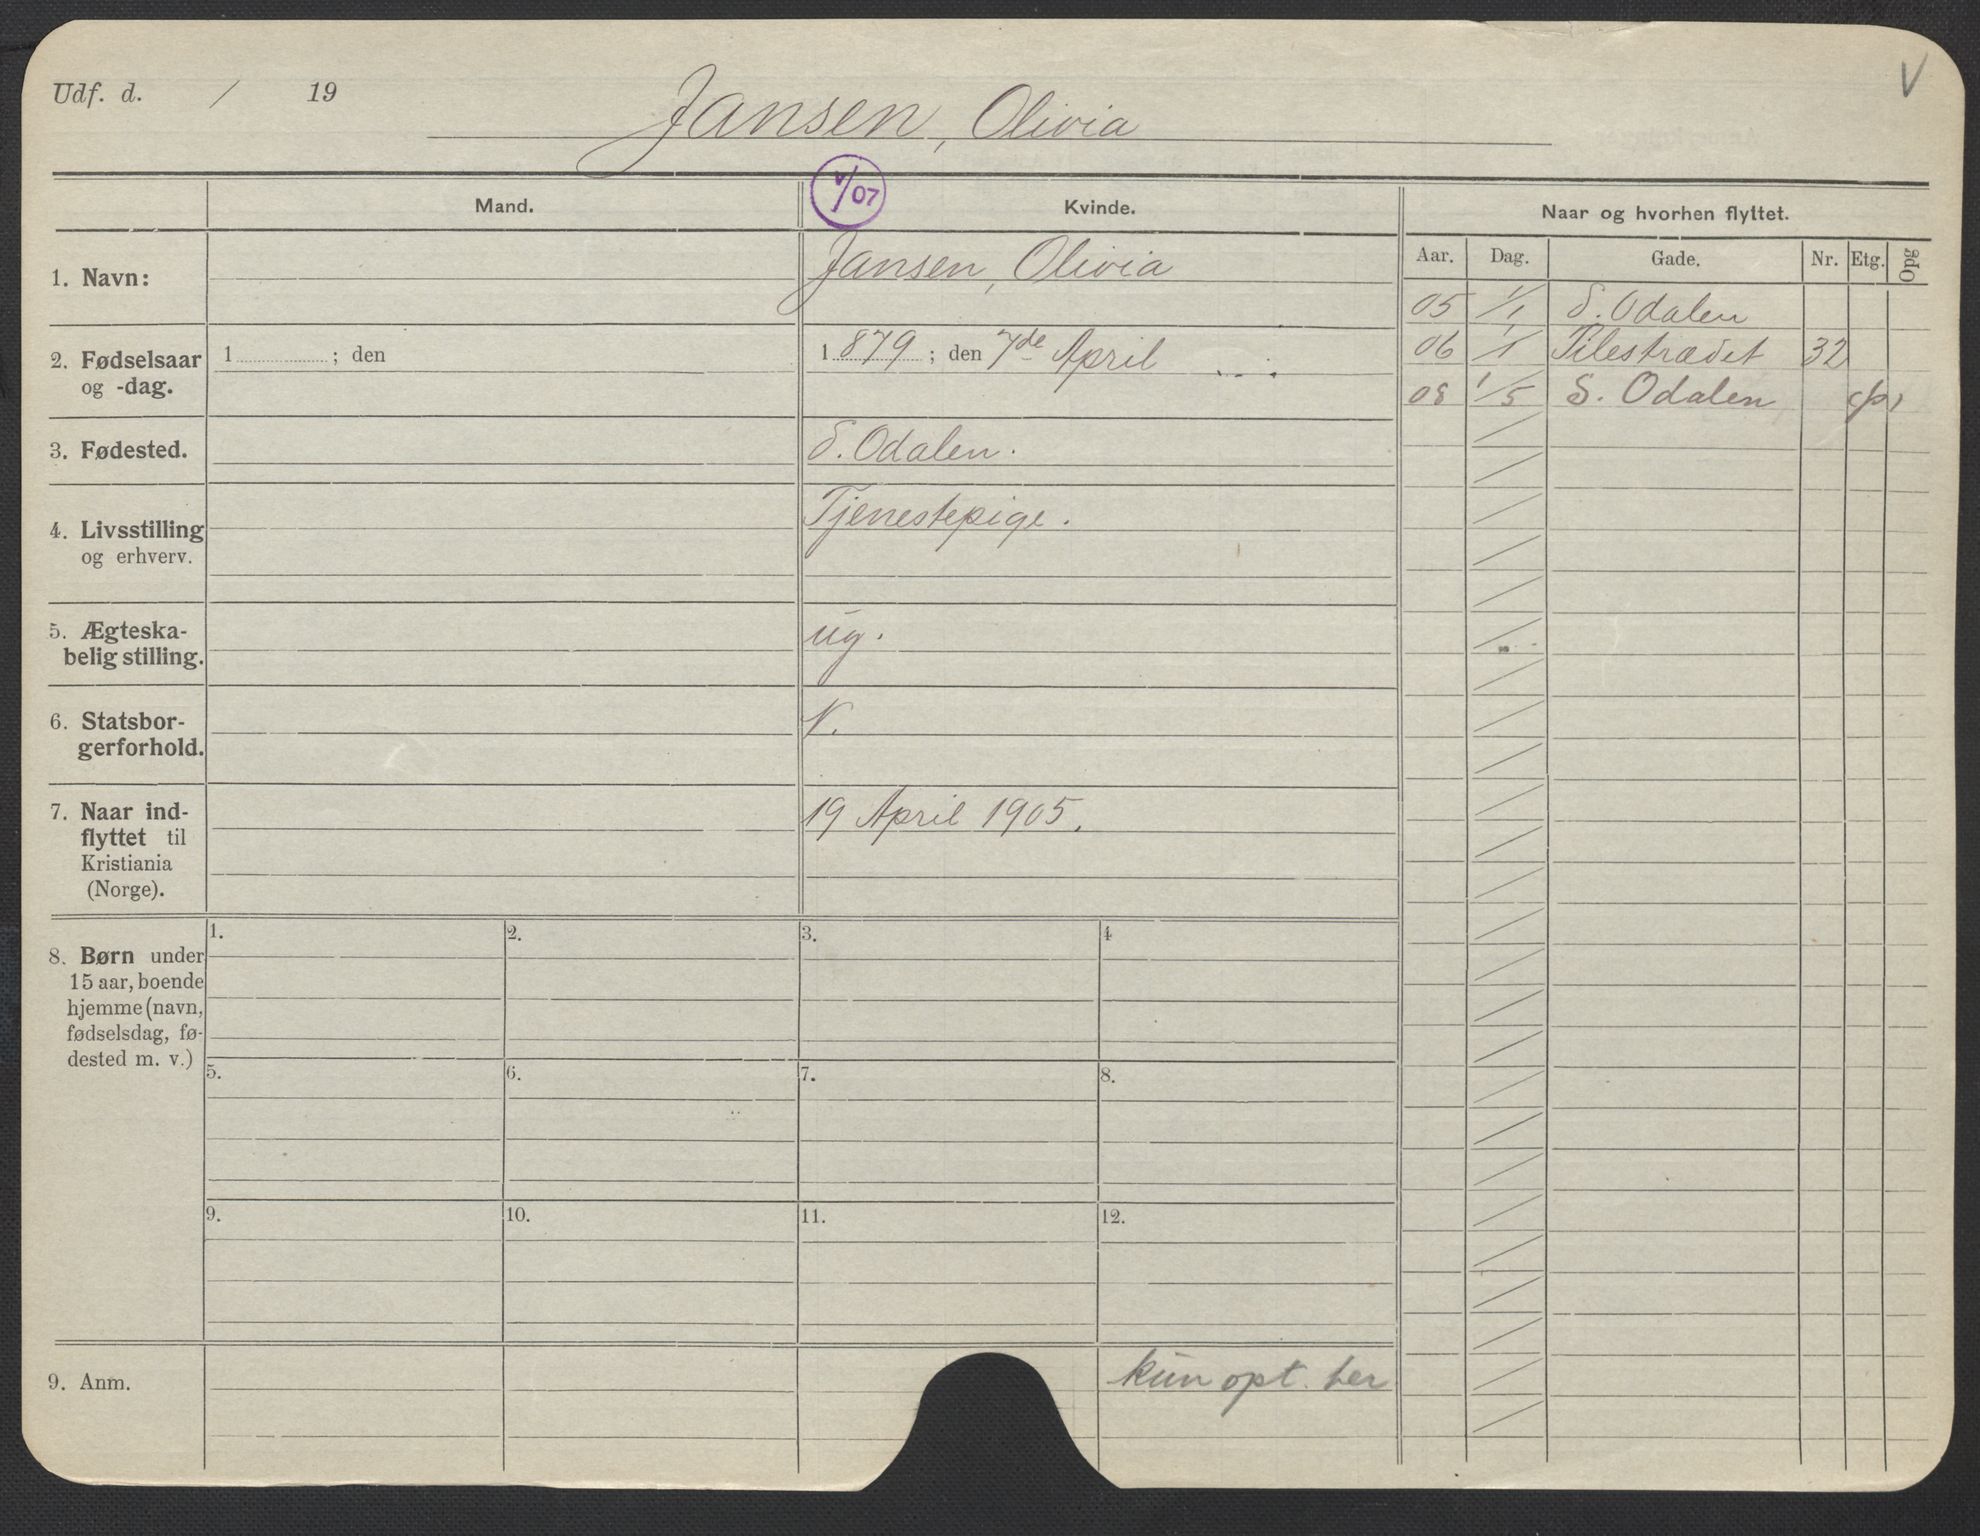 Udf. d. / 19
Jansen, Olivia
V
V/07
Mand.
Kvinde.
Naar og hvorhen flyttet.
Aar. Dag. Gade. Nr. Etg. Opg
1. Navn:
Jansen, Olivia
05 1/1 S. Odalen
06 1/1 Pilestrædet 32
08 1/5 S. Odalen
2. Fødselsaar
og -dag.
1 ; den
1879 ; den 7de April
3. Fødested.
S. Odalen.
4. Livsstilling
og erhverv.
Tjenestepige.
5. Ægteska-
belig stilling.
ug.
6. Statsbor-
gerforhold.
N.
7. Naar ind-
flyttet til
Kristiania
(Norge).
19 April 1905.
8. Børn under
15 aar, boende
hjemme (navn,
fødselsdag, fø-
dested m. v.)
1. 2. 3. 4
5. 6. 7. 8.
9. 10. 11. 12.
9. Anm.
kun opt. her